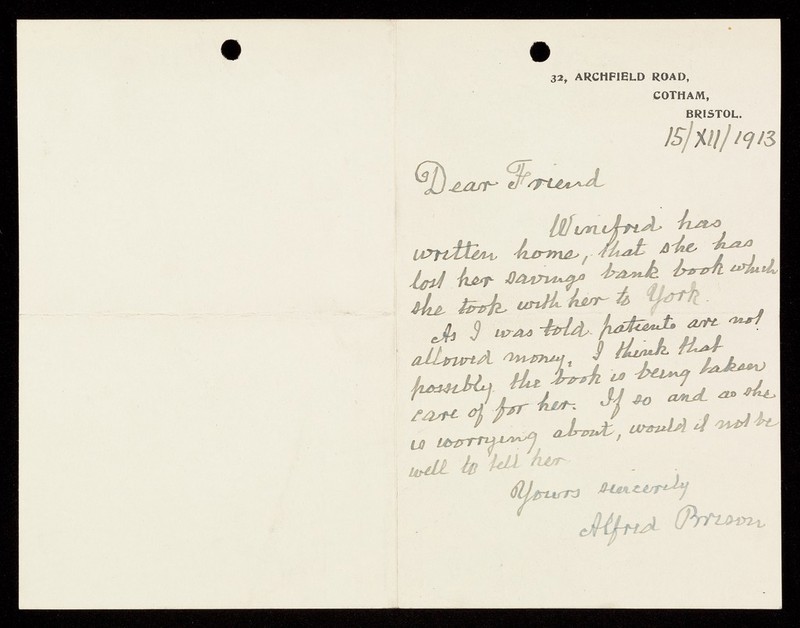 32, ARCHFIELD ROAD,
COTHAM,
BRISTOL.
15/XII/1913
Dear Friend
Winifred has
written home, that she has
lost her savings bank book which
she took with her to York.
As I was told patients are not
allowed money, I think that
possibly the book is being taken
care of for her. If so and as she
is worrying about, would it not be
well to tell her
Yours sincerely
Alfred